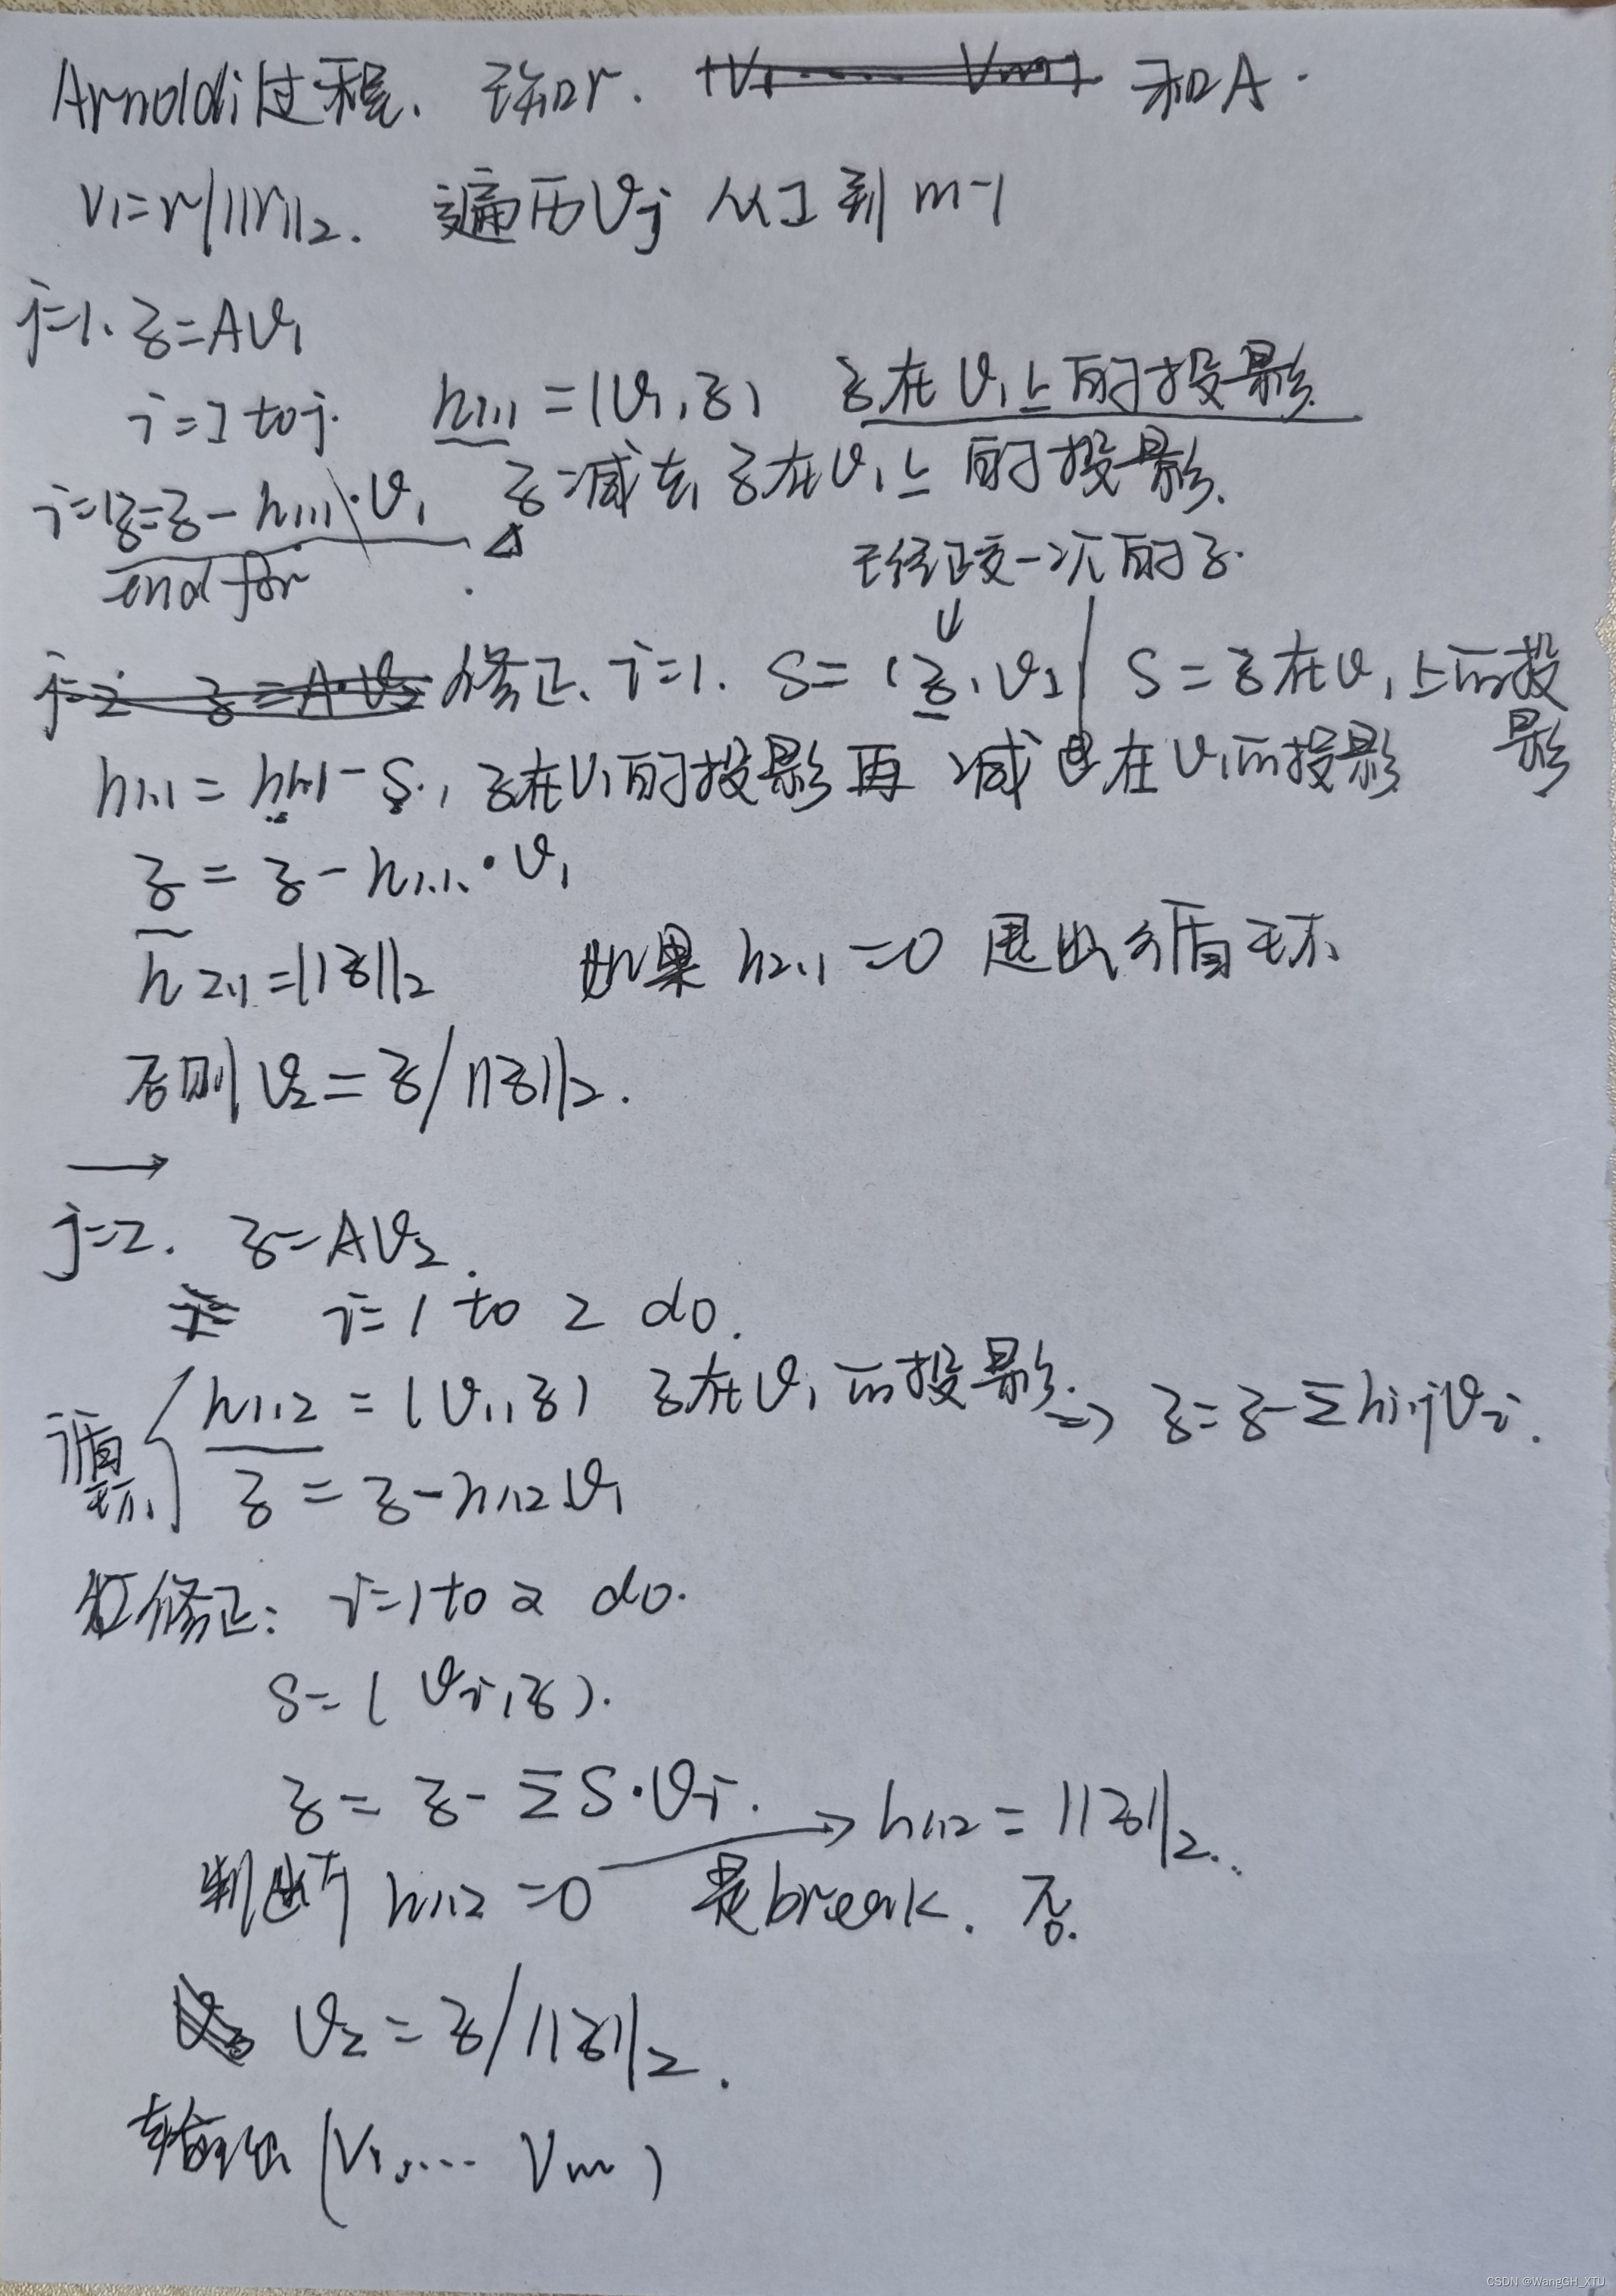 Arnoldi过程. 已知r. 和A.
v1=r/||r||2. 遍历vj 从1到m-1
j=1. z=Av1
i=1 to j. h1,1=(v1,z) z在v1上的投影
i=1 z=z-h1,1·v1 z减去z在v1上的投影.
end for
已经正交一次的z.
↓
j=2 z=A·v2 修正. i=1. S=(z,v1) S=z在v1上的投影
h1,1=h1,1-S., z在v1的投影再减 在v1的投影
z=z-h1,1·v1
h2,1=||z||2 如果h2,1=0退出循环
否则v2=z/||z||2.
→
j=2. z=Av2.
i=1 to 2 do.
循环 h1,2=(v1,z) z在v1的投影. => z=z-Σhi,jvi.
z=z-h1,2v1
修正: i=1 to 2 do.
S=(vi,z).
z=z-ΣS·vi. → h1,2=||z||2.
判断h1,2=0 是break. 否.
v2=z/||z||2.
输出(v1,.... vm)
CSDN @WangGH_XTU